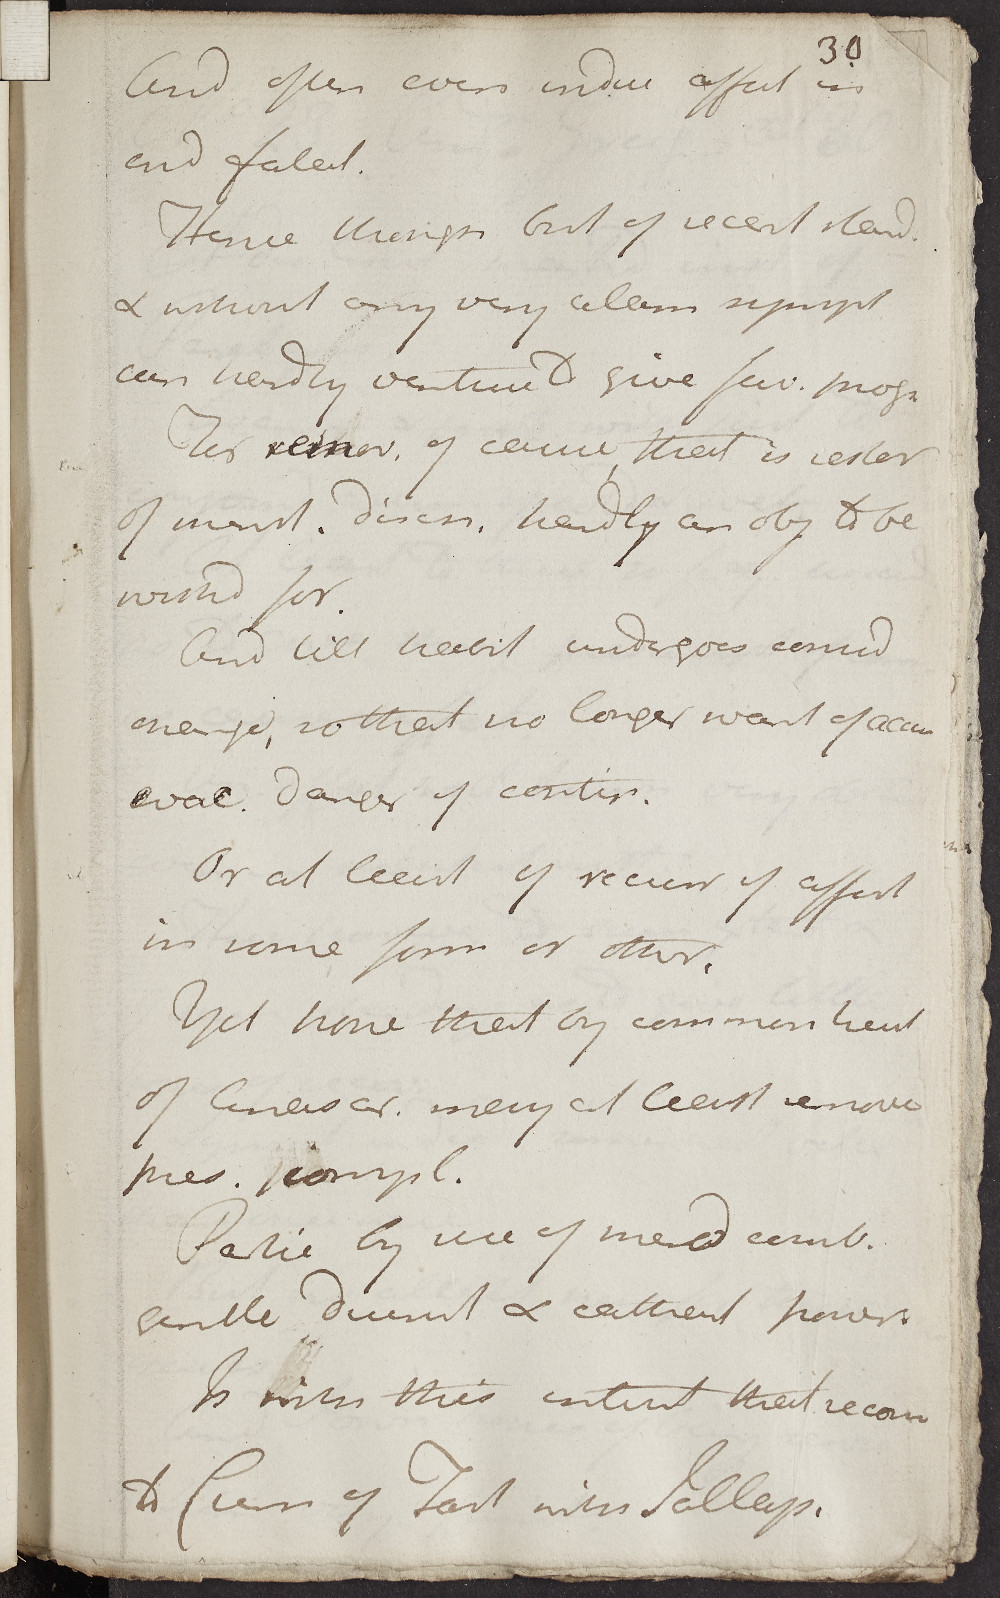 30
And often even under affect in
end fatal.
Hence though but of recent stand.
& without any very alarm sympt
can hardly venture to give fav. progn
For remov. of cause, that is rester
of menst. disch. hardly an obj to be
wishd for.
And till habit undergoes consid
change, so that no longer want of accu
evac. danger of contin.
Or at least of recurr of affect
in some form or other.
Yet hope that by common treat
of Anasar. may at least remove
pres. compl.
Partic by use of med comb.
gentle diuret & cathart power.
Is with this intent that recom
to Crem of Tart with Jallap.